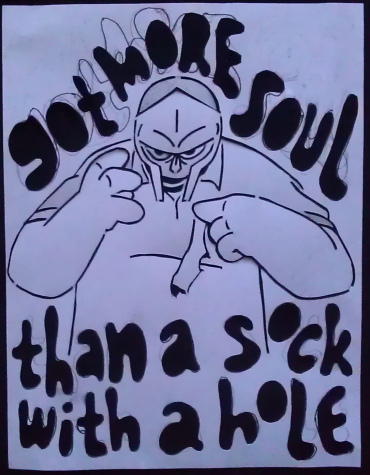 got MORE soul
than a sock
with a hOLE